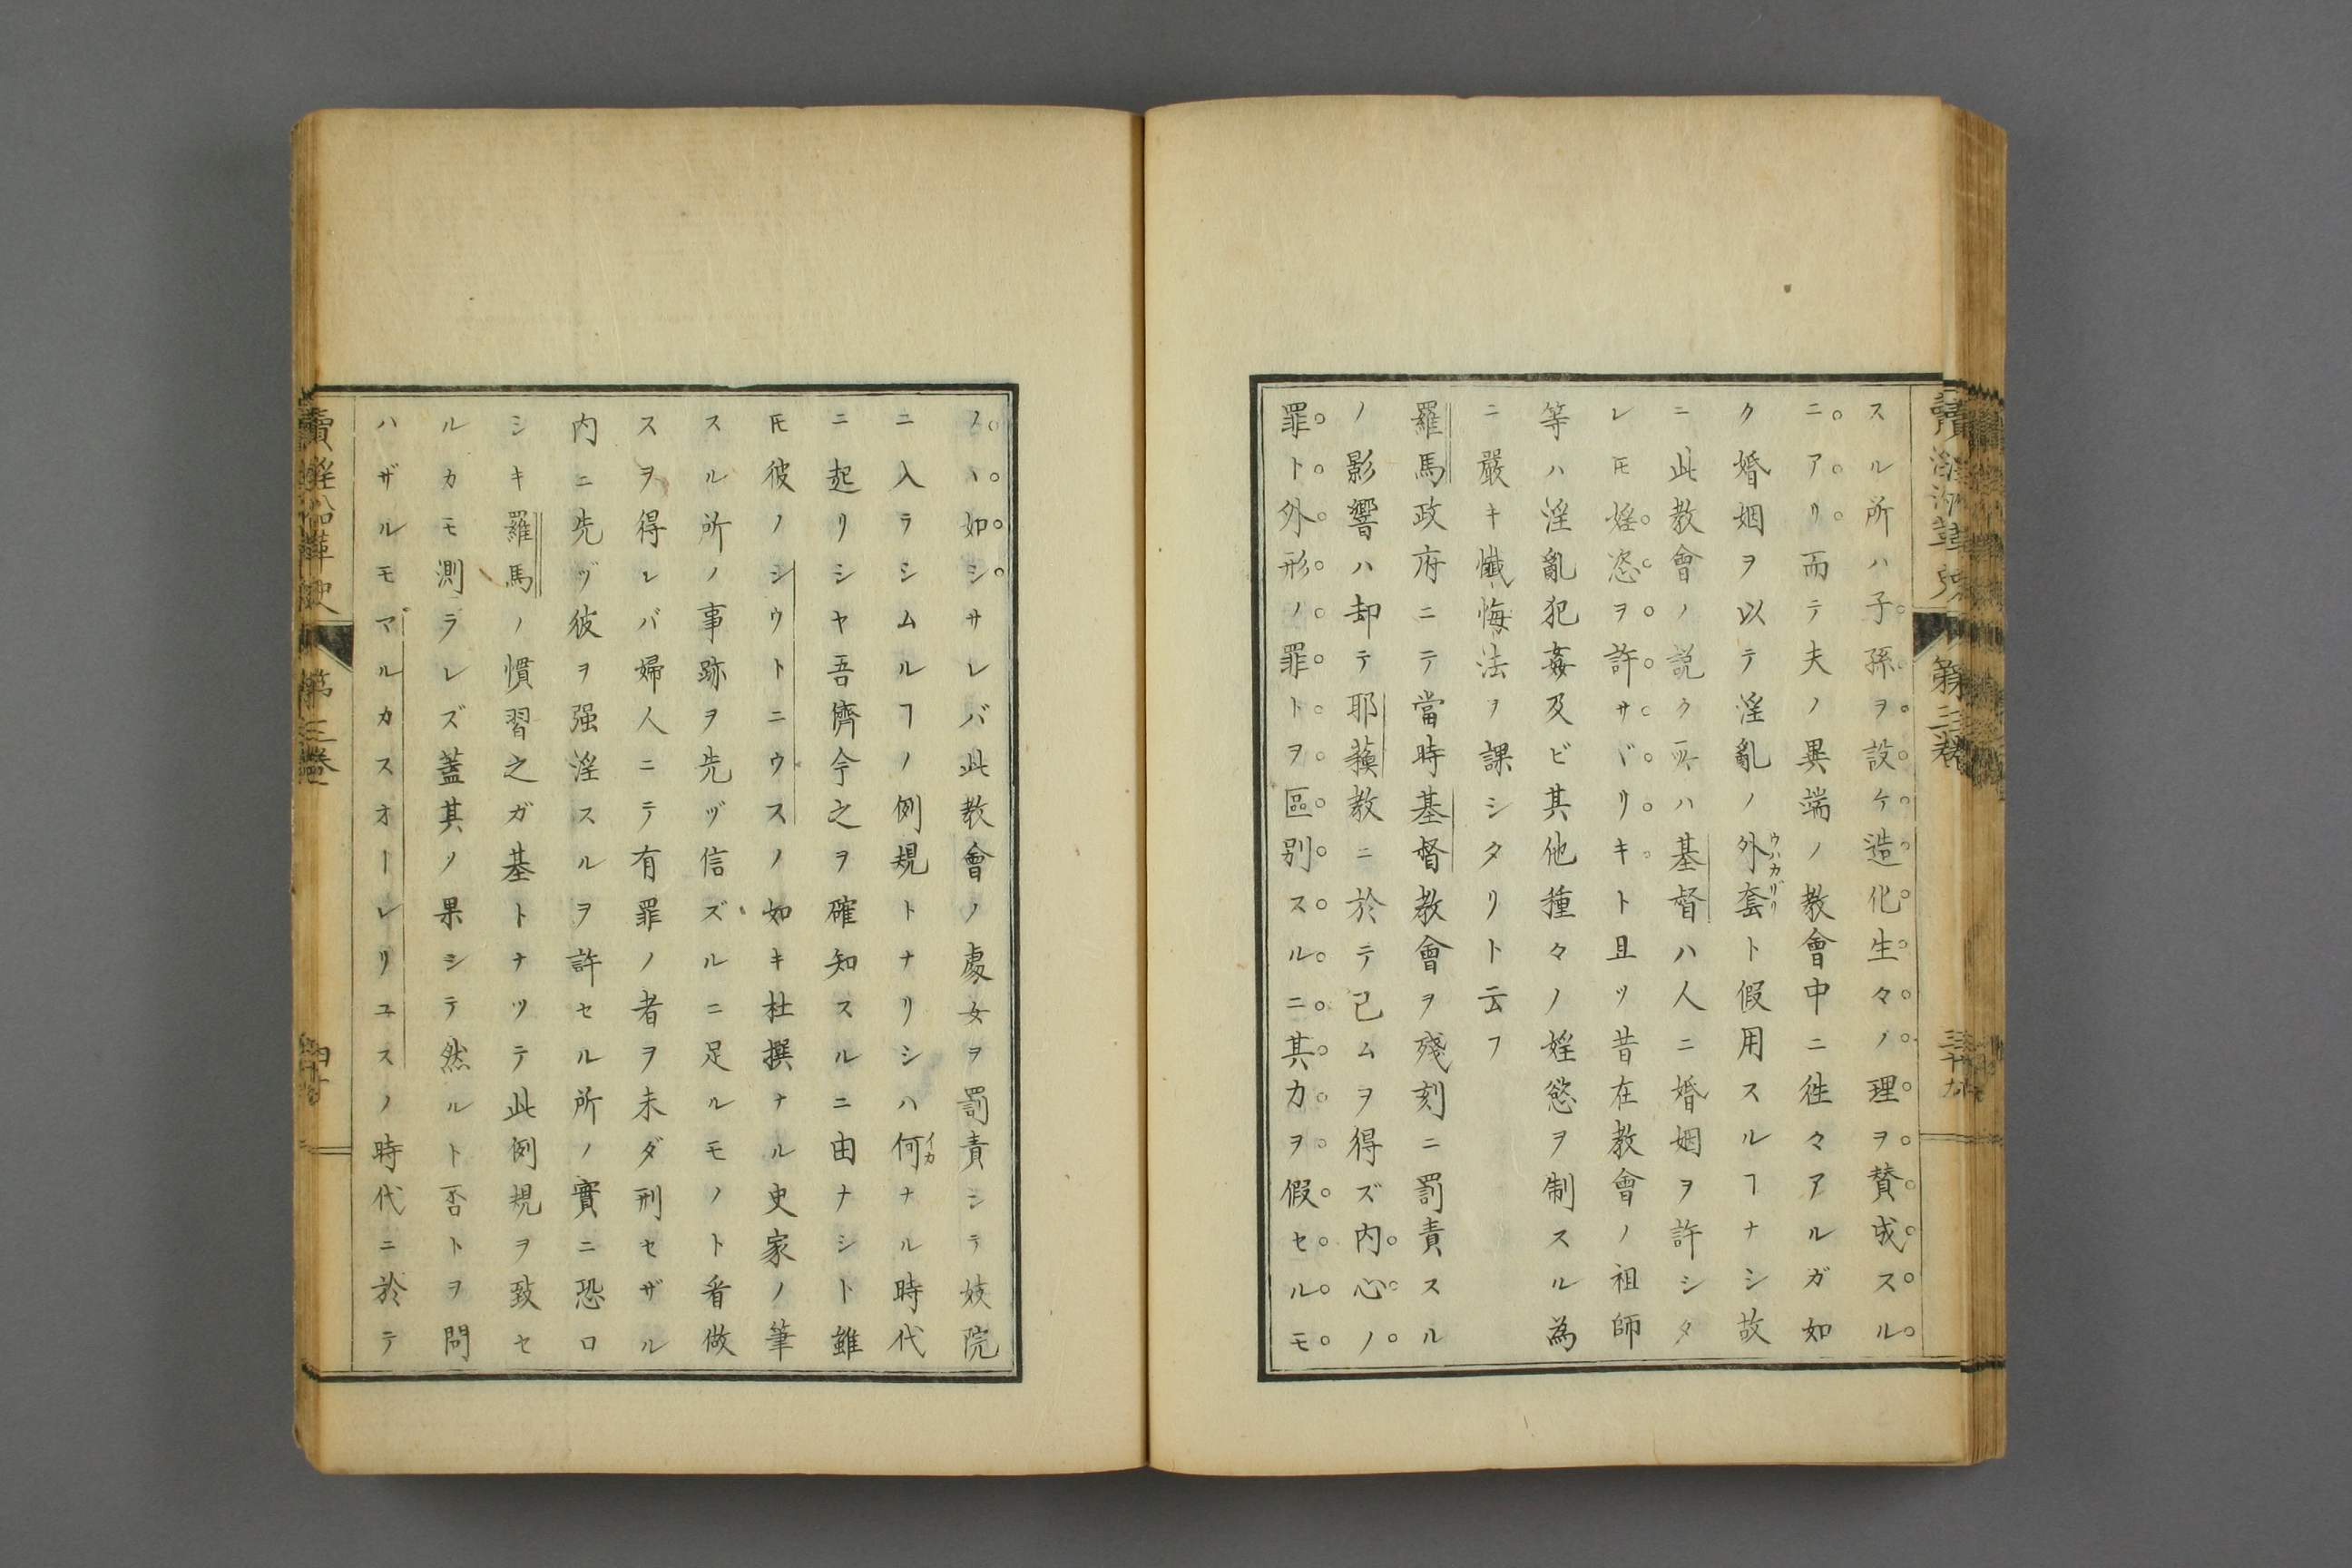 スル所ハ子孫ヲ設ケ造化生々ノ理ヲ賛成スル
ニアリ而テ夫ノ異端ノ教會中ニ徃々アルガ如
ク婚姻ヲ以テ淫亂ノ外套ト假用スルヿナシ故
ウハカザリ
ニ此教會ノ説ク所ハ基督ハ人ニ婚姻ヲ許シタ
レ𪜈婬恣ヲ許サヾリキト且ツ昔在教會ノ祖師
等ハ淫亂犯姦及ビ其他種々ノ婬慾ヲ制スル為
ニ嚴キ懺悔法ヲ課シタリト云フ
羅馬政府ニテ當時基督教會ヲ殘刻ニ罰責スル
ノ影響ハ却テ耶蘓教ニ於テ已ムヲ得ズ内心ノ
罪ト外形ノ罪トヲ區別スルニ其力ヲ假セルモ
ノヽ如シサレバ此教會ノ處女ヲ罰責シテ妓院
ニ入ラシムルヿノ例規トナリシハ何ナル時代
イカ
ニ起リシヤ吾儕今之ヲ確知スルニ由ナシト雖
𪜈彼ノシウトニウスノ如キ杜撰ナル史家ノ筆
スル所ノ事跡ヲ先ヅ信ズルニ足ルモノト看做
スヲ得レバ婦人ニテ有罪ノ者ヲ未ダ刑セザル
内ニ先ヅ彼ヲ强淫スルヲ許セル所ノ實ニ恐ロ
シキ羅馬ノ慣習之ガ基トナツテ此例規ヲ致セ
ルカモ測ラレズ蓋其ノ果シテ然ルト否トヲ問
ハザルモマルカスオーレリユスノ時代ニ於テ
賣婬沿革史
第三卷
三十九
賣婬沿革史
第三卷
四十